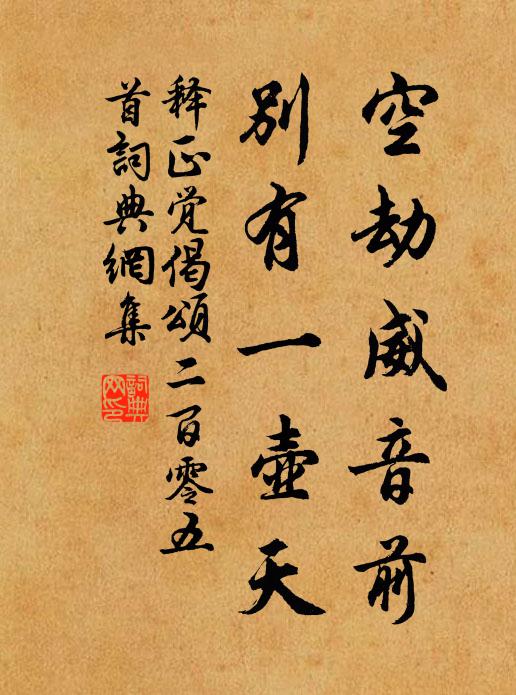 空劫威音前
别有一壶天
释正觉偈頌二百零五
首詞典網集
詞典
网印